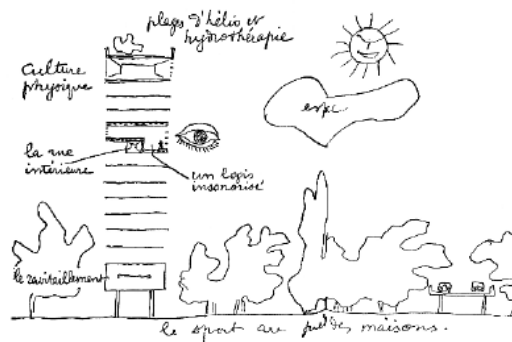 plages d'hélio et
hydrothérapie
Culture
physique
espc
la rue
intérieure
un logis
insonorisé
le ravitaillement
le sport au pied des maisons.